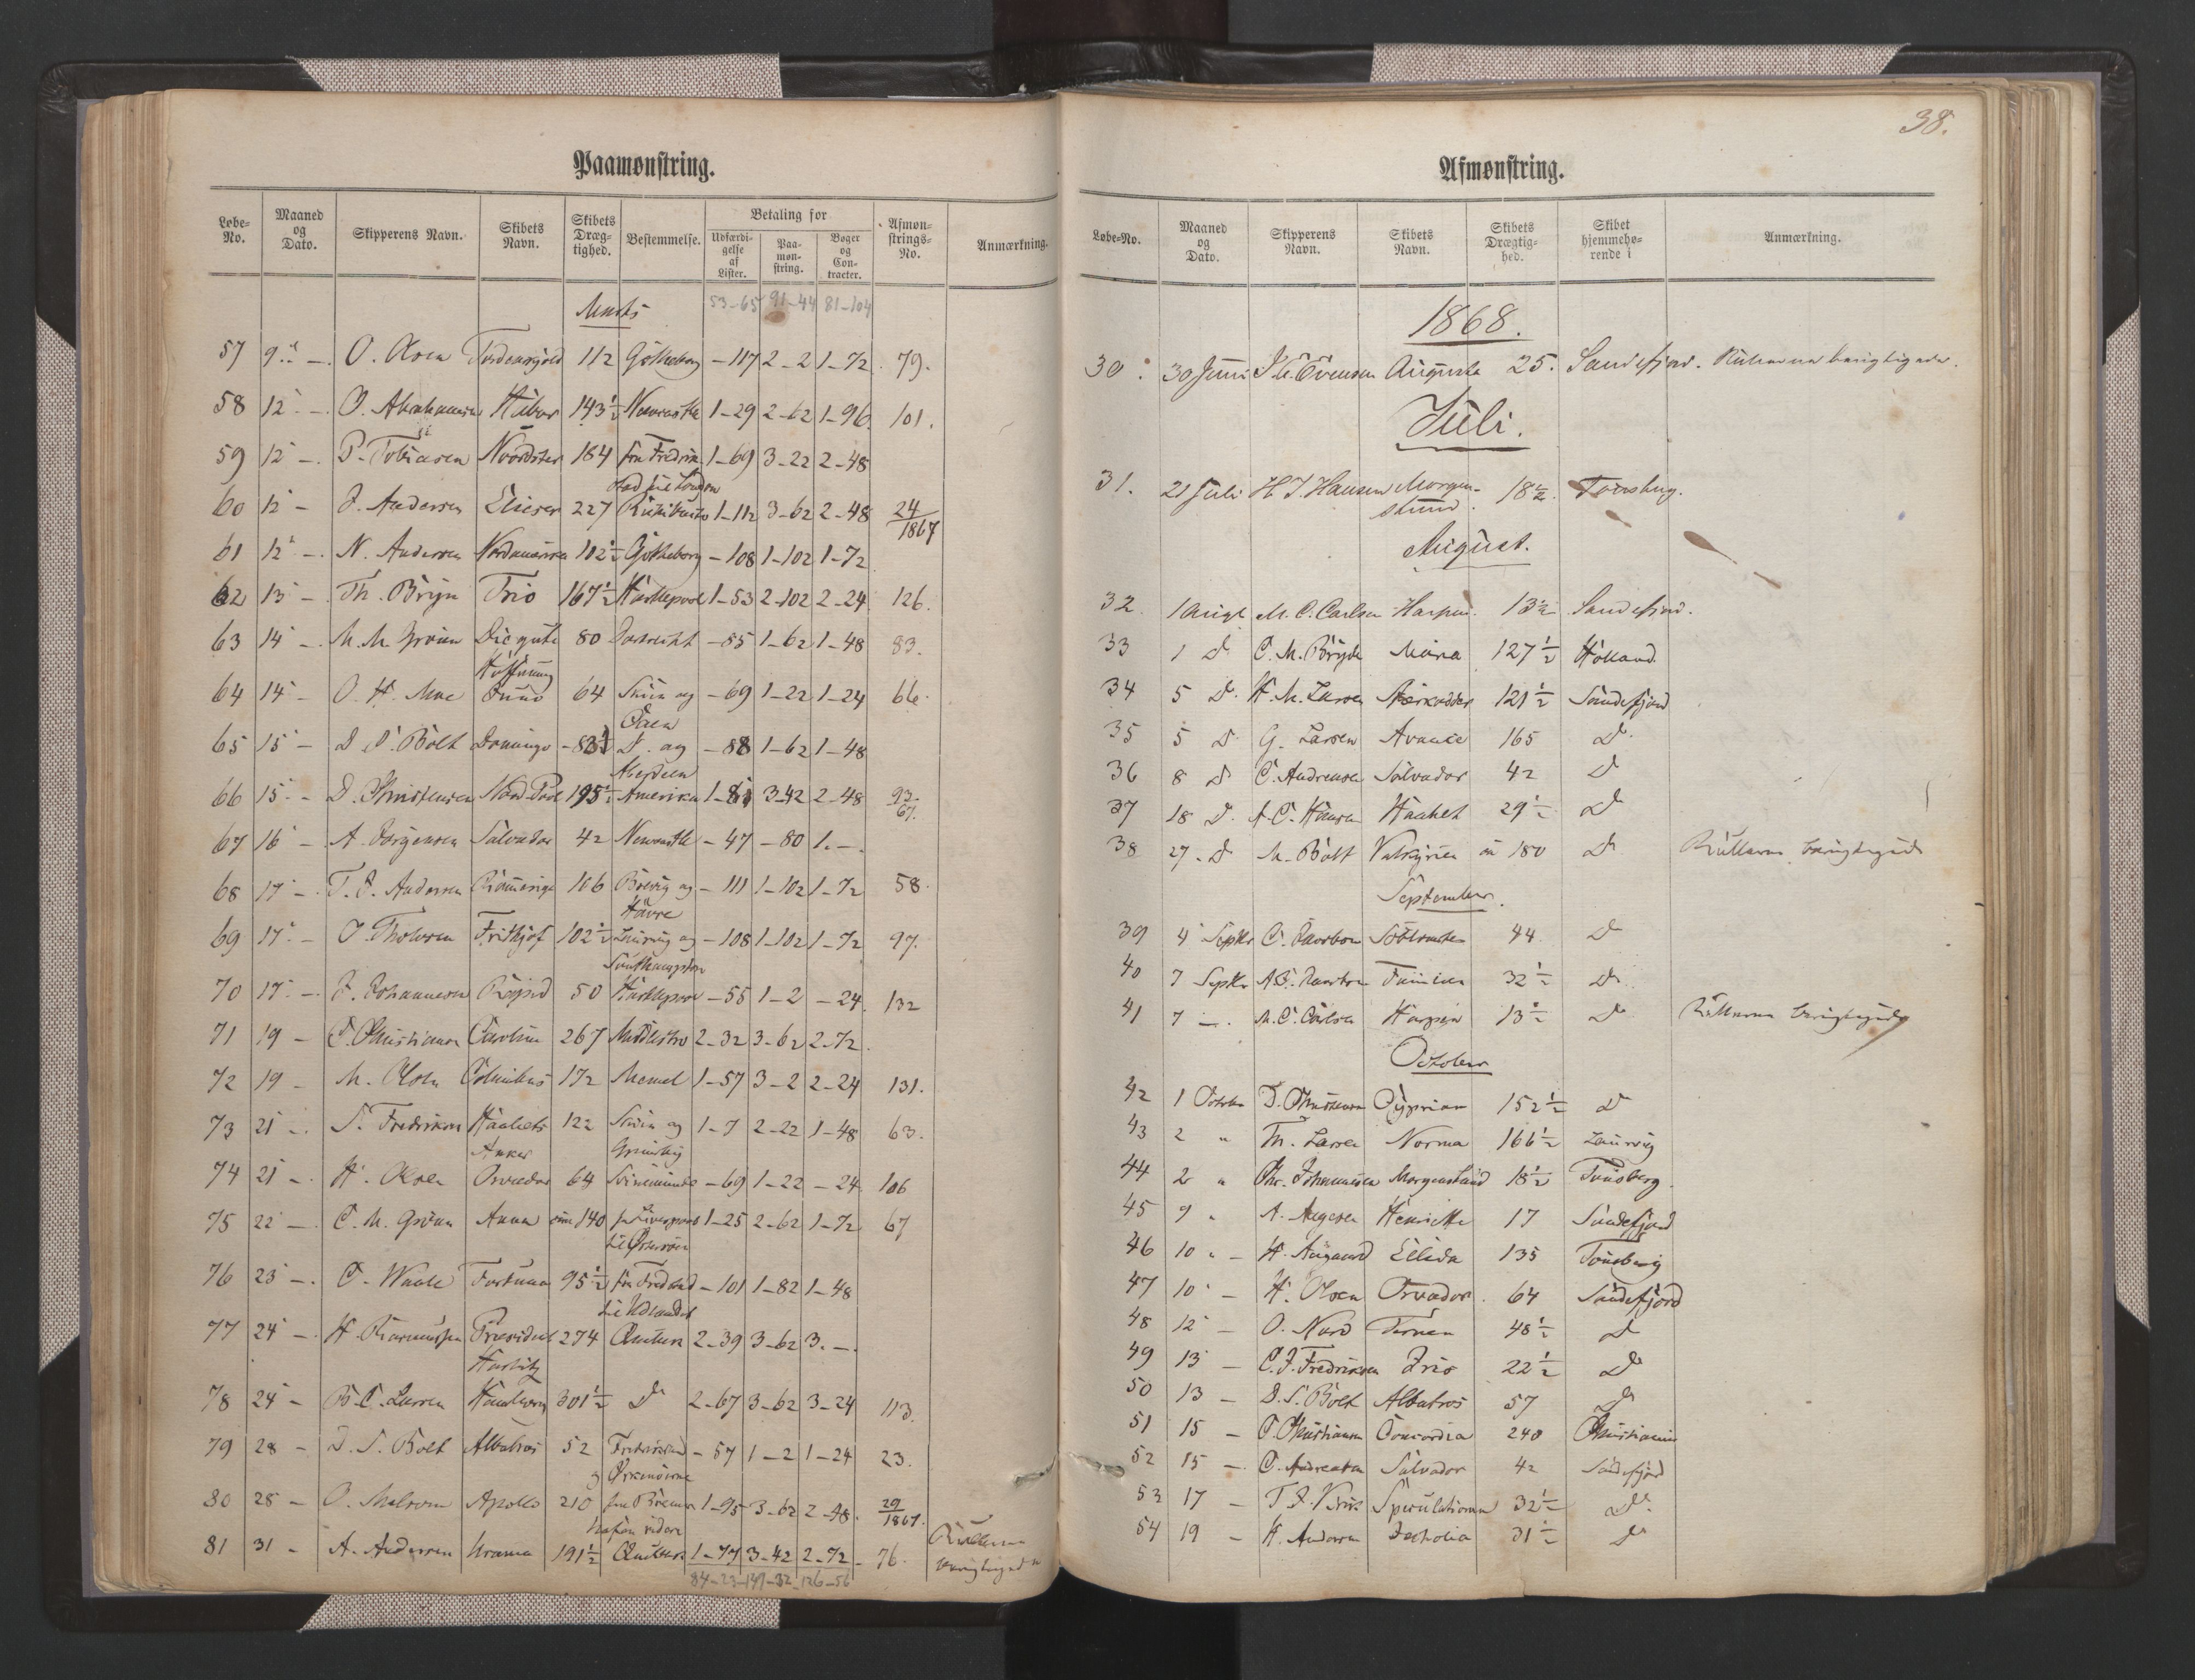 Paamønstring.
Løbe-No. Maaned og Dato. Skipperens Navn. Skibets Navn. Skibets Dræg-tighed. Bestemmelse. Betaling for Udfærdi-gelse af Lister. Paa-møn-string. Bøger og Con-tracter. Afmøn-strings-No. Anmærkning.
Marts 53-65 91-44 81-104
57 9 - O. Olsen Tordenskjold 112 Gøtheborg - 117 2-2 1-72 79.
58 12 - O. Abrahamsen 143½ Newcastle 1-29 2-62 1-96 101.
59 12 - P. Tobiasen Nordster 184 fra Fredrik 1-69 3-22 2-48
stad til London
60 12 - J. Andersen Elieser 227 1-112 3-62 2-48 24/1867
61 12 - N. Andersen 102½ Gøtheborg - 108 1-102 1-72
62 13 - Th. Bryn Trio 167½ Hartlepool 1-53 2-102 2-24 126.
63 14 - M. M. Grønn Die gute 80 Dordrecht - 85 1-62 1-48 83.
Hoffnung
64 14 - O. H. Moe Juno 64 Skien og - 69 1-22 1-24 66.
Caen
65 15 - D. S. Bolt Domingo - 83½ D. og - 88 1-62 1-48
Aberdeen
66 15 - D. Christensen Nord Pol 195½ Amerika 1-81 3-42 2-48 93/67.
67 16 - A. Jørgensen Salvador 42 Newcastle - 47 - 80 1. -.
68 17 - T. J. Andersen 106 Brevig og - 111 1-102 1-72 58.
Havre
69 17 - O. Tholersen Frithjof 102½ Laurvig og - 108 1-102 1-72 97.
Southampton
70 17 - J. Johannesen 50 Hartlepool - 55 1-2 - 24 132
71 19 - C. Christiansen Caroline 267 Middlesbro 2-32 3-62 2-72.
72 19 - M. Olsen Columbus 172 Memel 1-57 3-2 2-24 131.
73 21 - S. Fredriksen Haabets 122 Skien og 1-7 2-22 1-48 63.
Anker Grimsby
74 21 - H. Olsen Orvador 64 Svinemünde - 69 1-22 - 24 106
75 22 - C. M. Grønn Anna om 140 fr Liverpool 1-25 2-62 1-72 67
til Østersøen
76 23 - C. Waale Fortuna 95½ fra Fredstad - 101 1-82 1-48
til Udlandet
77 24 - H. Rasmussen President 274 Quebec 2-39 3-62 3. -.
Harbitz
78 24 - B. C. Larsen 301½ D 2-67 3-62 3-24 113.
79 28 - D. S. Bolt Albatros 52 - 57 1-2 1-24 23.
80 28 - O. Apollo 210 fra Bremer 1-95 3-62 2-48. 29/1867.
hafen videre
81 31 - A. Andersen Urania 191½ Quebec 1-77 3-42 2-72 76. Rullerne
berigtiged
84-23 149-32 126-56
38.
Afmønstring.
Løbe-No. Maaned og Dato. Skipperens Navn. Skibets Navn. Skibets Drægtig-hed. Skibet hjemmehø-rende i Anmærkning.
1868.
30. 30 Juni Evensen Augusta 25. Sandefjord. Rullerne berigtigede.
Juli.
31. 21 Juli H. J. Hansen Morgen- 18½ Tønsberg.
stund.
August.
32. 1 Augt M. C. Carlsen Harpen 13½ Sandefjord.
33 1 D. C. M. Bryde Maria 127½ Holland
34 5 D. H. M. Larsen 121½ Sandefjord
35 5 D. G. Larsen Avance 165 D.
36 8 D C. Andreasen Salvador 42 D
37 18 D. A. C. Hansen Haabet 29½ D
38 27. D M. Bolt Valkyrien om 180 D Rullerne berigtigede
September.
39 4 Septbr C. 44 D
40 7 Septbr Familien 32½ D
41 7 -. M. C. Carlsen Harpen 13½ D Rullerne berigtigede
October
42 1 Octobr D. Christensen Cyprian 152½ D
43 2 " Th. Larsen Norma 166½ Laurvig
44 2 " Chr. Johannesen Morgenstund 18½ Tønsberg.
45 9 " A. Aagesen Henriette 17 Sandefjord
46 10 " - H. Aagaard Ellida 135 Tønsberg
47 10 - H. Olsen Orvador. 64 Sandefjord
48 12 - O. Nord Ternen 48½ D
49 13 - C. J. Fredriksen Iris 22½ D
50 13 - D. S. Bolt Albatros 57 D
51 15 - C. Christiansen Concordia 240 Christiania
52 15 -. C. Andreasen Salvador 42 Sandefjord
53 17 - T. A. Speculationen 32½ D.
54 19 - H. Andersen 31½ D